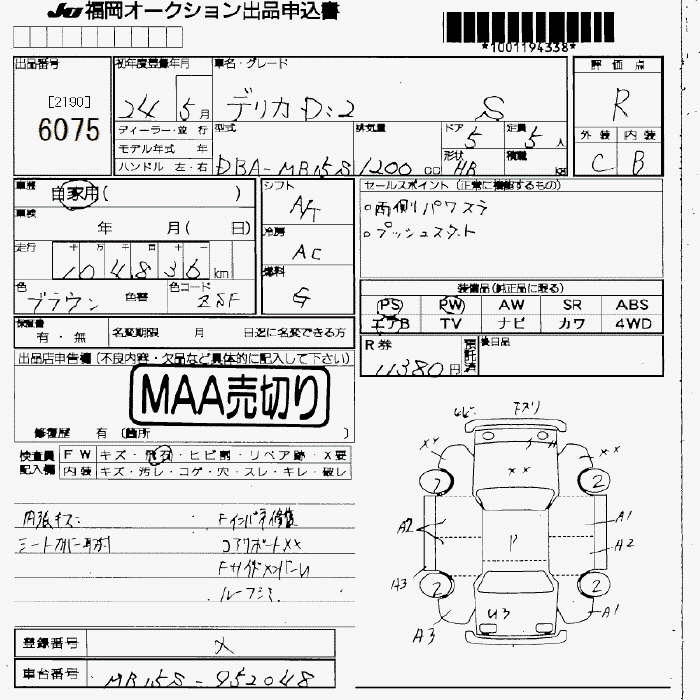 JU 福岡オークション出品申込書
*1001194338*
出品番号 初年度登録年月 車名・グレード 評価点
[2190]
6075
24 5月 デリカD:2 S R
ディーラー・並行 型式 排気量 ドア 定員 外装 内装
モデル年式 年 5 5人
ハンドル 左・右 DBA-MB15S 1200cc 形状 HB 積載 kg C B
車歴 自家用( ) シフト A/T セールスポイント (正常に機能するもの)
車検 年 月( 日) 冷房 AC ○両側パワスラ
○プッシュスタート
走行 十 万 千 百 十
104836km 燃料 G
装備品(純正品に限る)
色 ブラウン 色替 色コード ZSF
PS PW AW SR ABS
エアB TV ナビ カワ 4WD
保証書 有・無 名変期限 月 日迄に名変できる方
R券 11380円 預託済 後日品
出品店申告欄(不良内容・欠品など具体的に記入して下さい)
MAA売切り
修復歴 有 (箇所 )
検査員 FW キズ・飛石・ヒビ割・リペア跡・X要
記入欄 内装 キズ・汚レ・コゲ・穴・スレ・キレ・破レ
内張キズ Fインパネ修復
シートカバー コアサポートXX
Fサイドメンバー
XX XX
XX
2 2
A2 A1
P A2
A3
2 2
U3 A1
A3
登録番号
車台番号 MB15S-952048